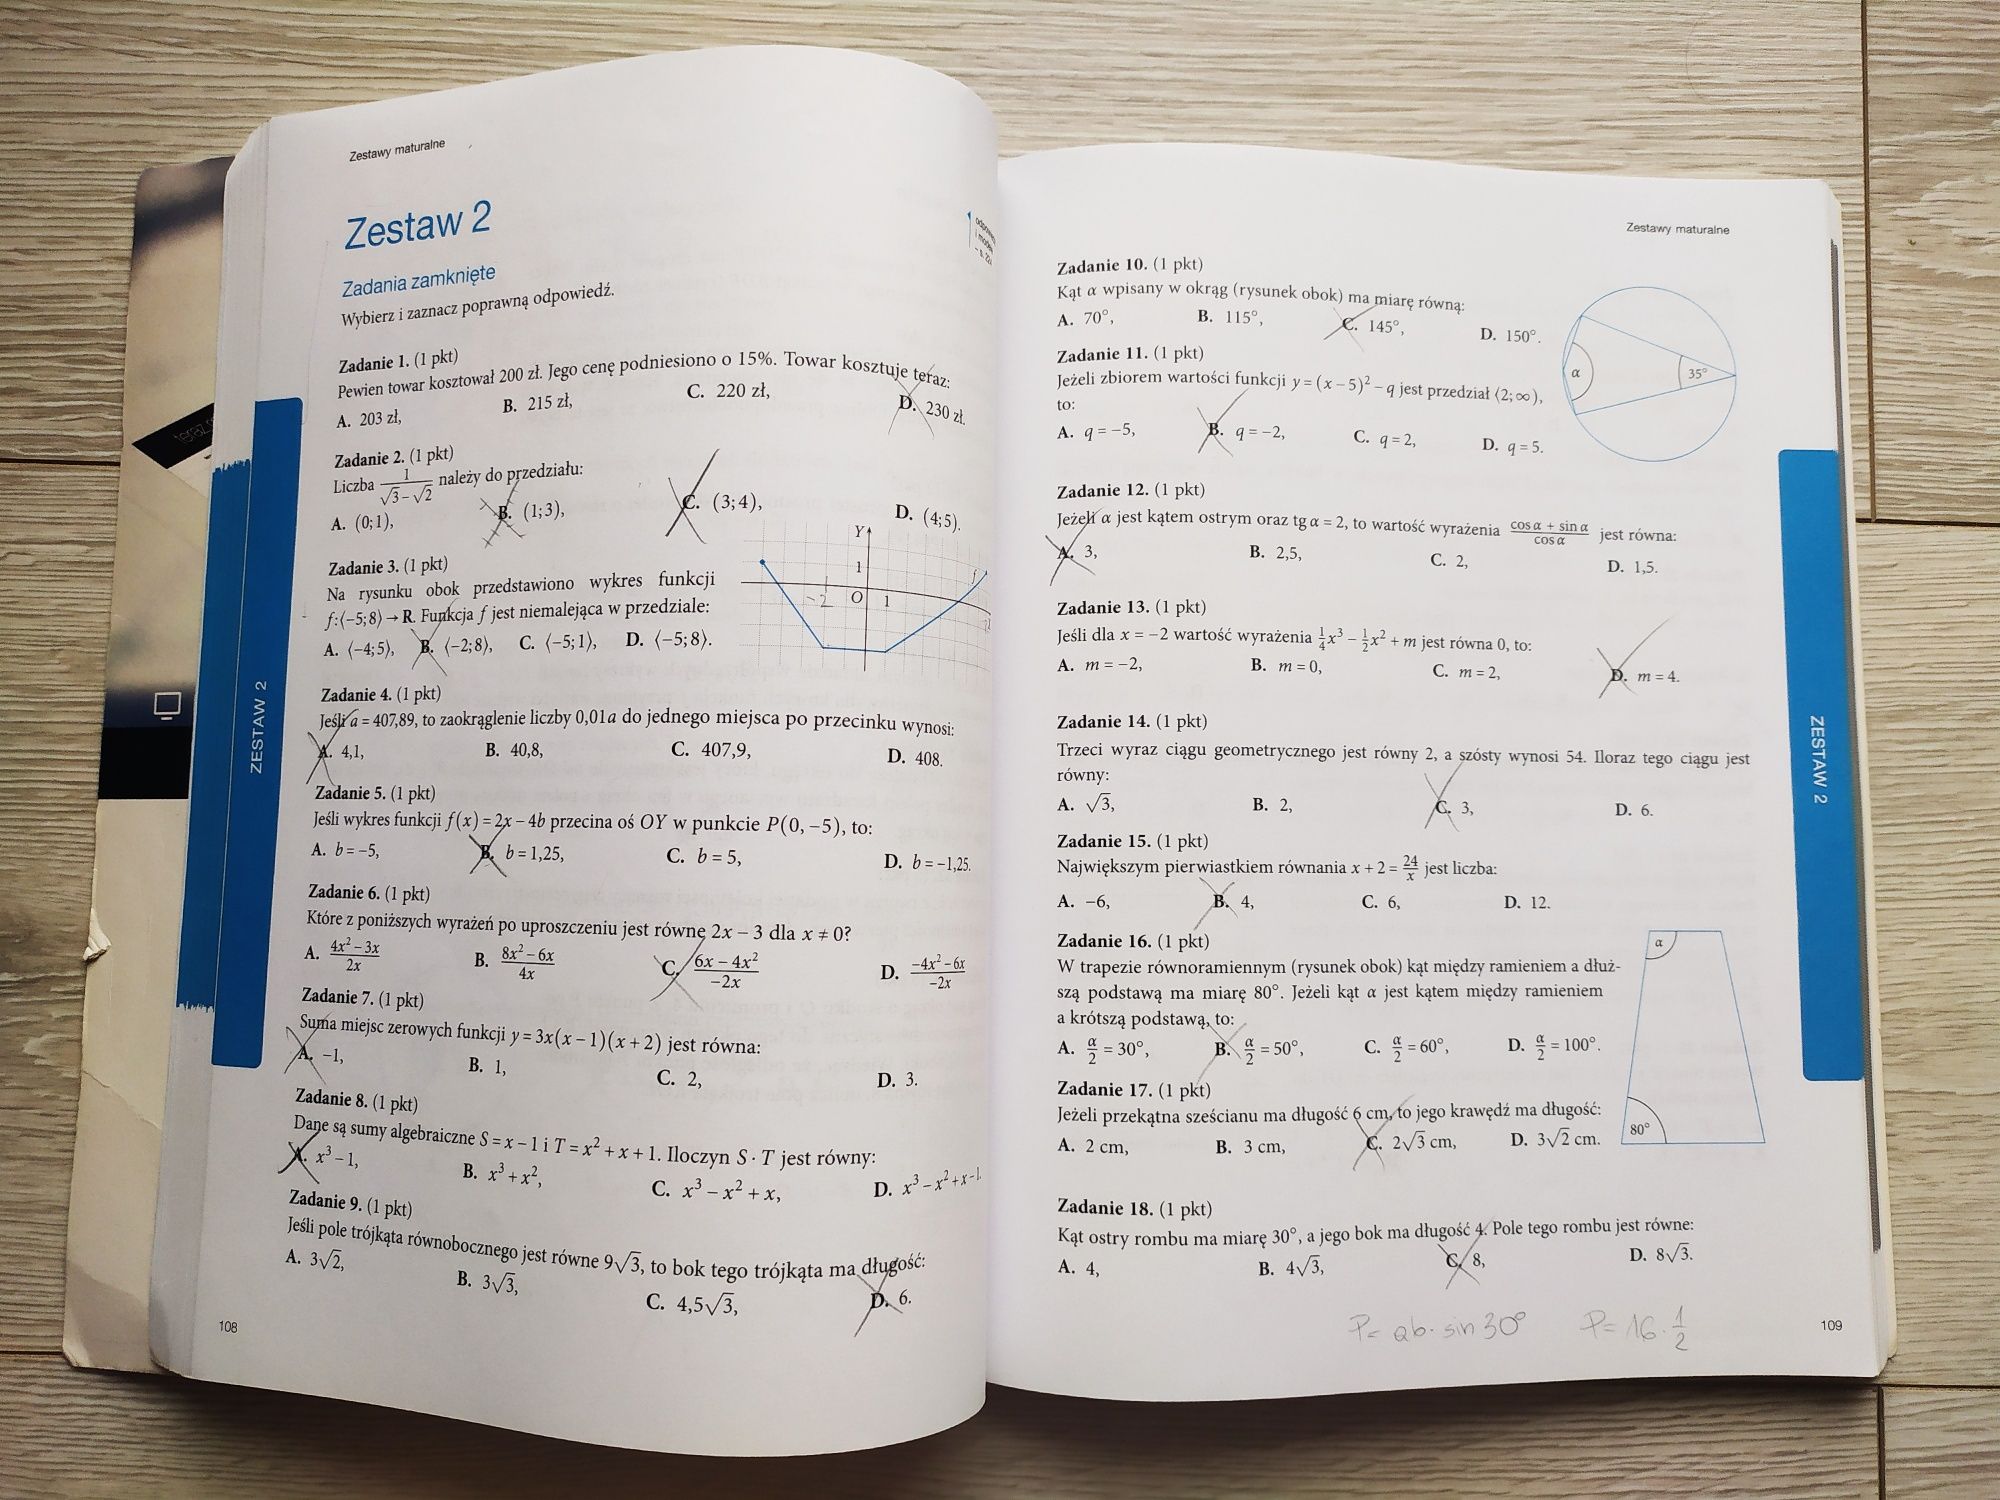 Zestawy maturalne
Zestaw 2
Zadania zamknięte
Wybierz i zaznacz poprawną odpowiedź.
Zadanie 1. (1 pkt)
Pewien towar kosztował 200 zł. Jego cenę podniesiono o 15%. Towar kosztuje teraz:
A. 203 zł, B. 215 zł, C. 220 zł, D. 230 zł.
Zadanie 2. (1 pkt)
Liczba 1/(√3 − √2) należy do przedziału:
A. (0;1), B. (1;3), C. (3;4), D. (4;5).
Zadanie 3. (1 pkt)
Na rysunku obok przedstawiono wykres funkcji
f:⟨−5;8⟩ → R. Funkcja f jest niemalejąca w przedziale:
A. ⟨−4;5⟩, B. ⟨−2;8⟩, C. ⟨−5;1⟩, D. ⟨−5;8⟩.
Y
1
-2 O 1
f
Zadanie 4. (1 pkt)
Jeśli a = 407,89, to zaokrąglenie liczby 0,01a do jednego miejsca po przecinku wynosi:
A. 4,1, B. 40,8, C. 407,9, D. 408.
Zadanie 5. (1 pkt)
Jeśli wykres funkcji f(x) = 2x − 4b przecina oś OY w punkcie P(0, −5), to:
A. b = −5, B. b = 1,25, C. b = 5, D. b = −1,25.
Zadanie 6. (1 pkt)
Które z poniższych wyrażeń po uproszczeniu jest równe 2x − 3 dla x ≠ 0?
A. (4x² − 3x)/2x B. (8x² − 6x)/4x C. (6x − 4x²)/−2x D. (−4x² − 6x)/−2x
Zadanie 7. (1 pkt)
Suma miejsc zerowych funkcji y = 3x(x − 1)(x + 2) jest równa:
A. −1, B. 1, C. 2, D. 3.
Zadanie 8. (1 pkt)
Dane są sumy algebraiczne S = x − 1 i T = x² + x + 1. Iloczyn S · T jest równy:
A. x³ − 1, B. x³ + x², C. x³ − x² + x, D. x³ − x² + x − 1.
Zadanie 9. (1 pkt)
Jeśli pole trójkąta równobocznego jest równe 9√3, to bok tego trójkąta ma długość:
A. 3√2, B. 3√3, C. 4,5√3, D. 6.
108
ZESTAW 2
Zestawy maturalne
Zadanie 10. (1 pkt)
Kąt α wpisany w okrąg (rysunek obok) ma miarę równą:
A. 70°, B. 115°, C. 145°, D. 150°.
α 35°
Zadanie 11. (1 pkt)
Jeżeli zbiorem wartości funkcji y = (x − 5)² − q jest przedział ⟨2; ∞),
to:
A. q = −5, B. q = −2, C. q = 2, D. q = 5.
Zadanie 12. (1 pkt)
Jeżeli α jest kątem ostrym oraz tg α = 2, to wartość wyrażenia (cos α + sin α)/cos α jest równa:
A. 3, B. 2,5, C. 2, D. 1,5.
Zadanie 13. (1 pkt)
Jeśli dla x = −2 wartość wyrażenia 1/4x³ − 1/2x² + m jest równa 0, to:
A. m = −2, B. m = 0, C. m = 2, D. m = 4.
Zadanie 14. (1 pkt)
Trzeci wyraz ciągu geometrycznego jest równy 2, a szósty wynosi 54. Iloraz tego ciągu jest
równy:
A. √3, B. 2, C. 3, D. 6.
Zadanie 15. (1 pkt)
Największym pierwiastkiem równania x + 2 = 24/x jest liczba:
A. −6, B. 4, C. 6, D. 12.
Zadanie 16. (1 pkt)
W trapezie równoramiennym (rysunek obok) kąt między ramieniem a dłuż-
szą podstawą ma miarę 80°. Jeżeli kąt α jest kątem między ramieniem
a krótszą podstawą, to:
A. α/2 = 30°, B. α/2 = 50°, C. α/2 = 60°, D. α/2 = 100°.
α
80°
Zadanie 17. (1 pkt)
Jeżeli przekątna sześcianu ma długość 6 cm, to jego krawędź ma długość:
A. 2 cm, B. 3 cm, C. 2√3 cm, D. 3√2 cm.
Zadanie 18. (1 pkt)
Kąt ostry rombu ma miarę 30°, a jego bok ma długość 4. Pole tego rombu jest równe:
A. 4, B. 4√3, C. 8, D. 8√3.
P = ab · sin 30° P = 16 · 1/2
109
ZESTAW 2